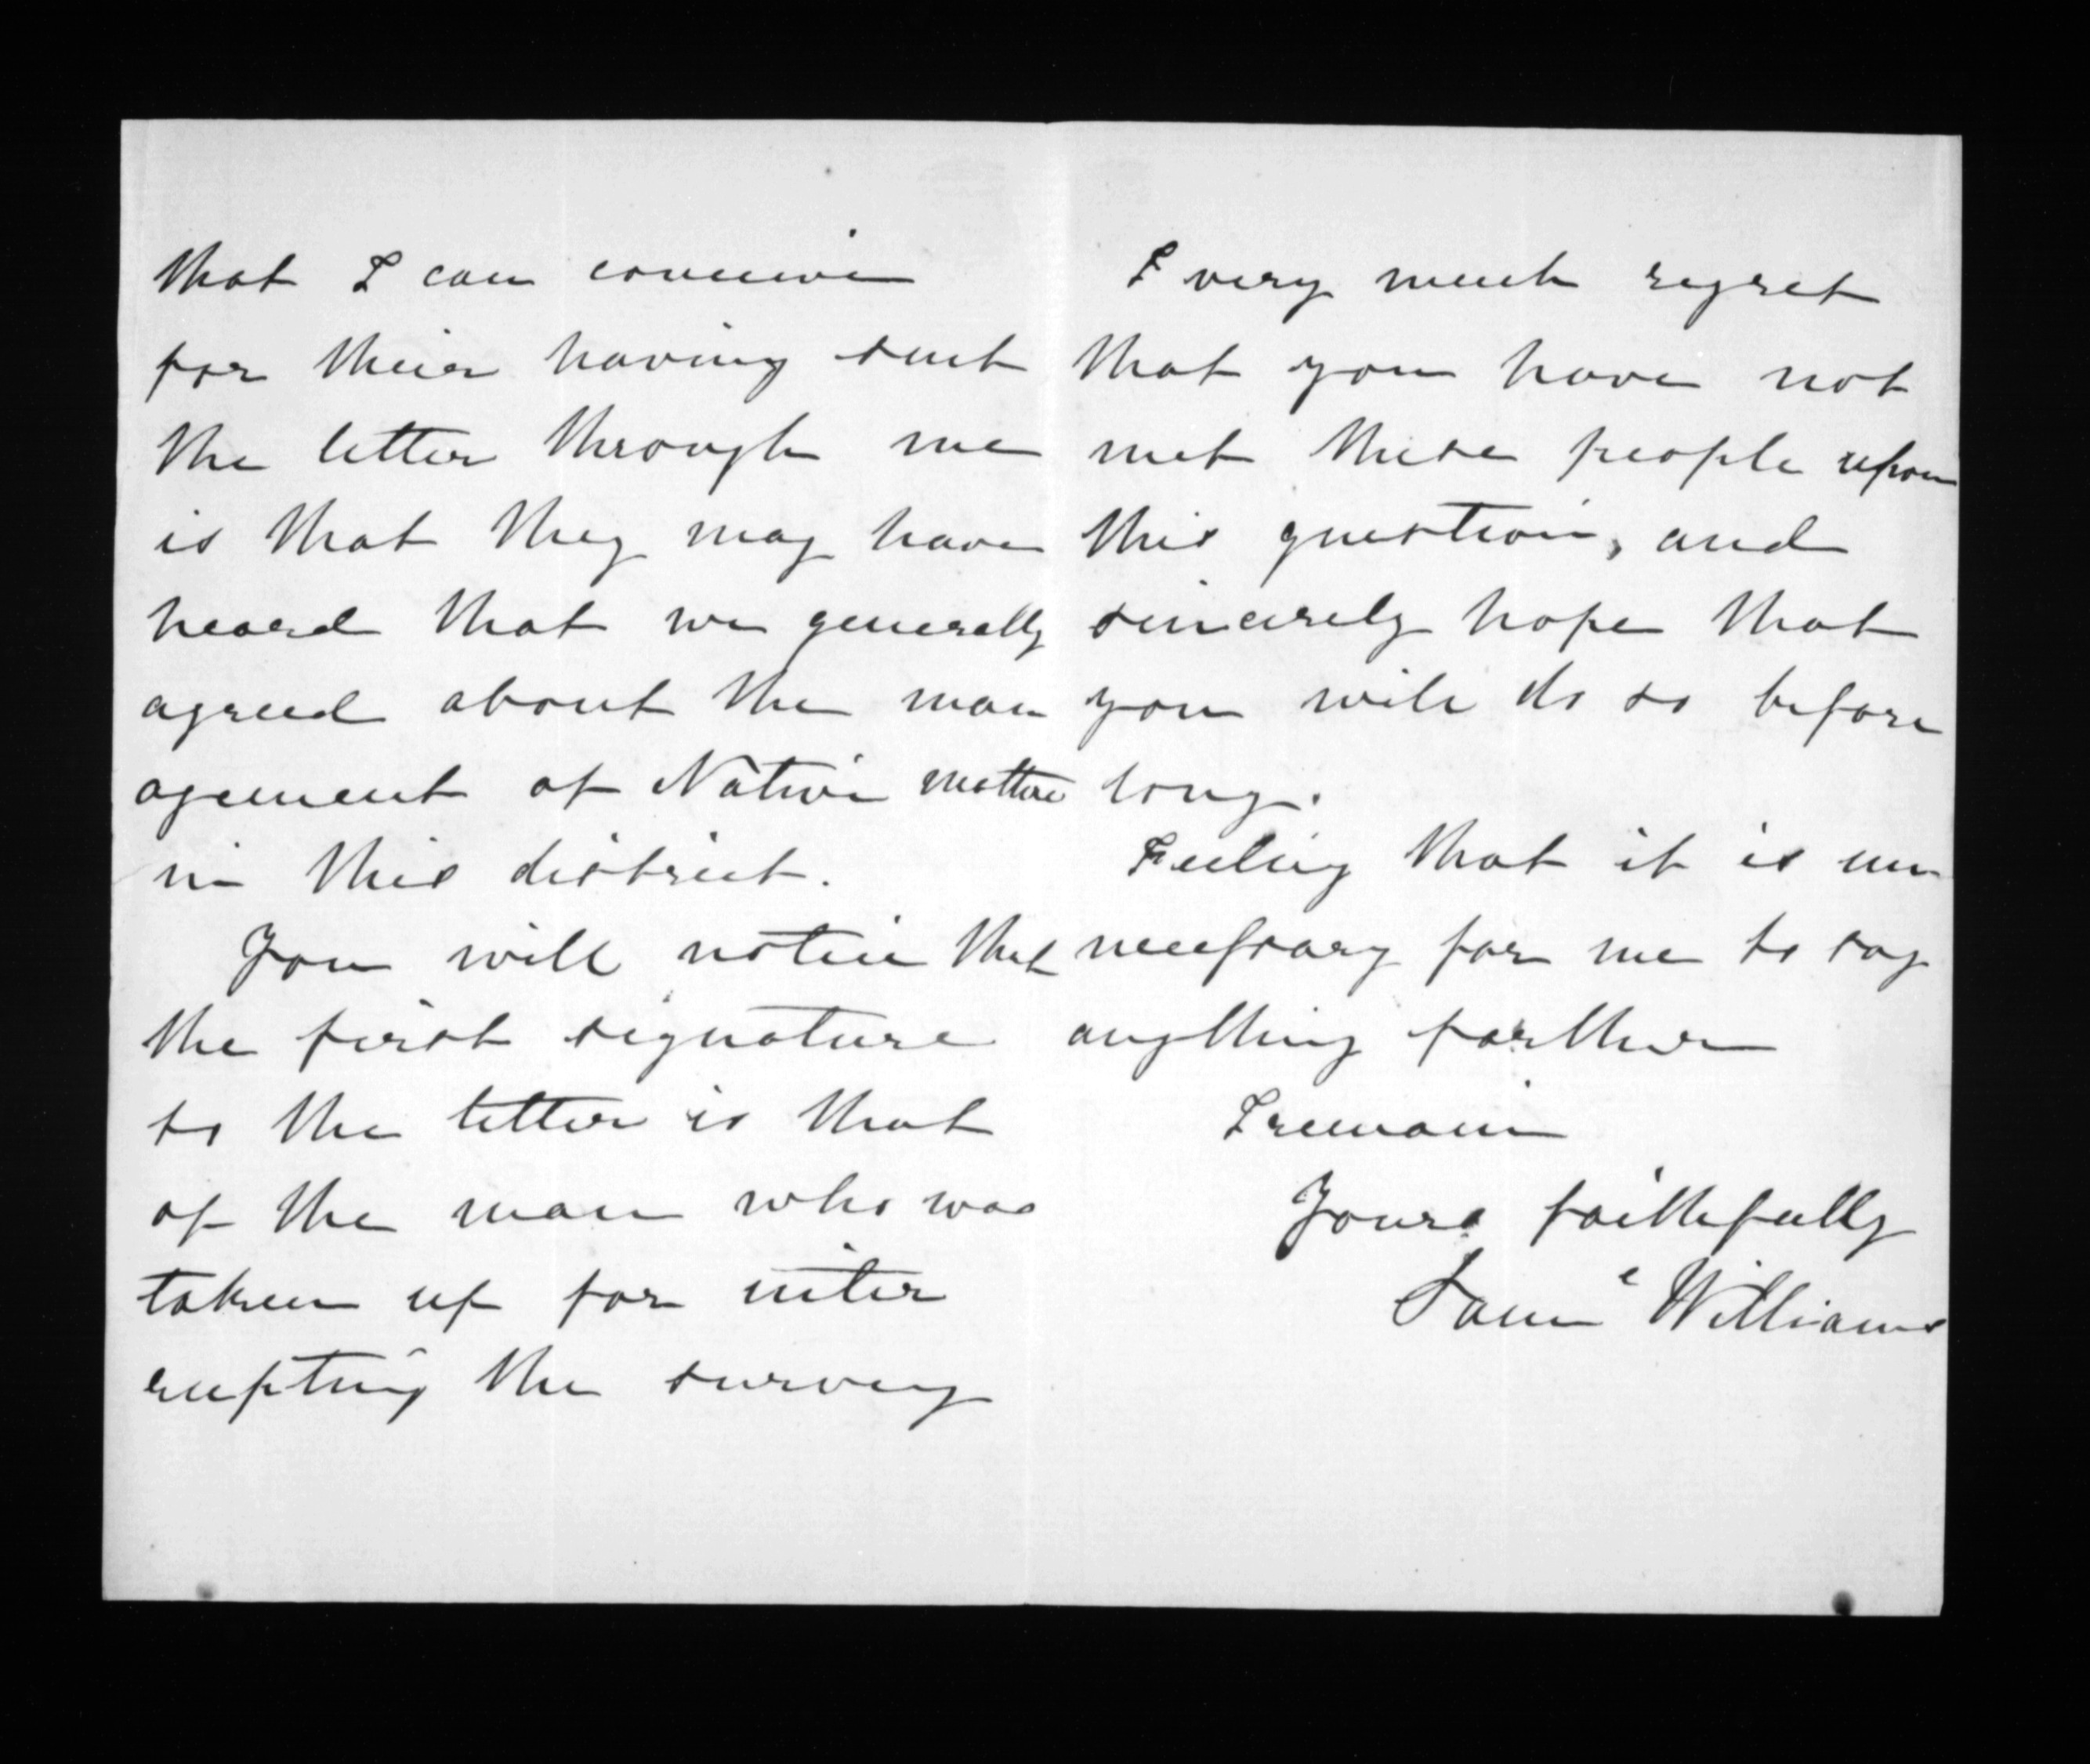 that I can conceive
for their having sent
the letter through me
is that they may have
heard that we generally
agreed about the man
agement of Native matters
in this district.
You will notice that
the first signature
to the letter is that
of the man who was
taken up for inter
rupting the survey
I very much regret
that you have not
met these people upon
this question, and
sincerely hope that
you will do so before
long.
Feeling that it is un
necessary for me to say
anything farther
I remain
Yours faithfully
Saml Williams